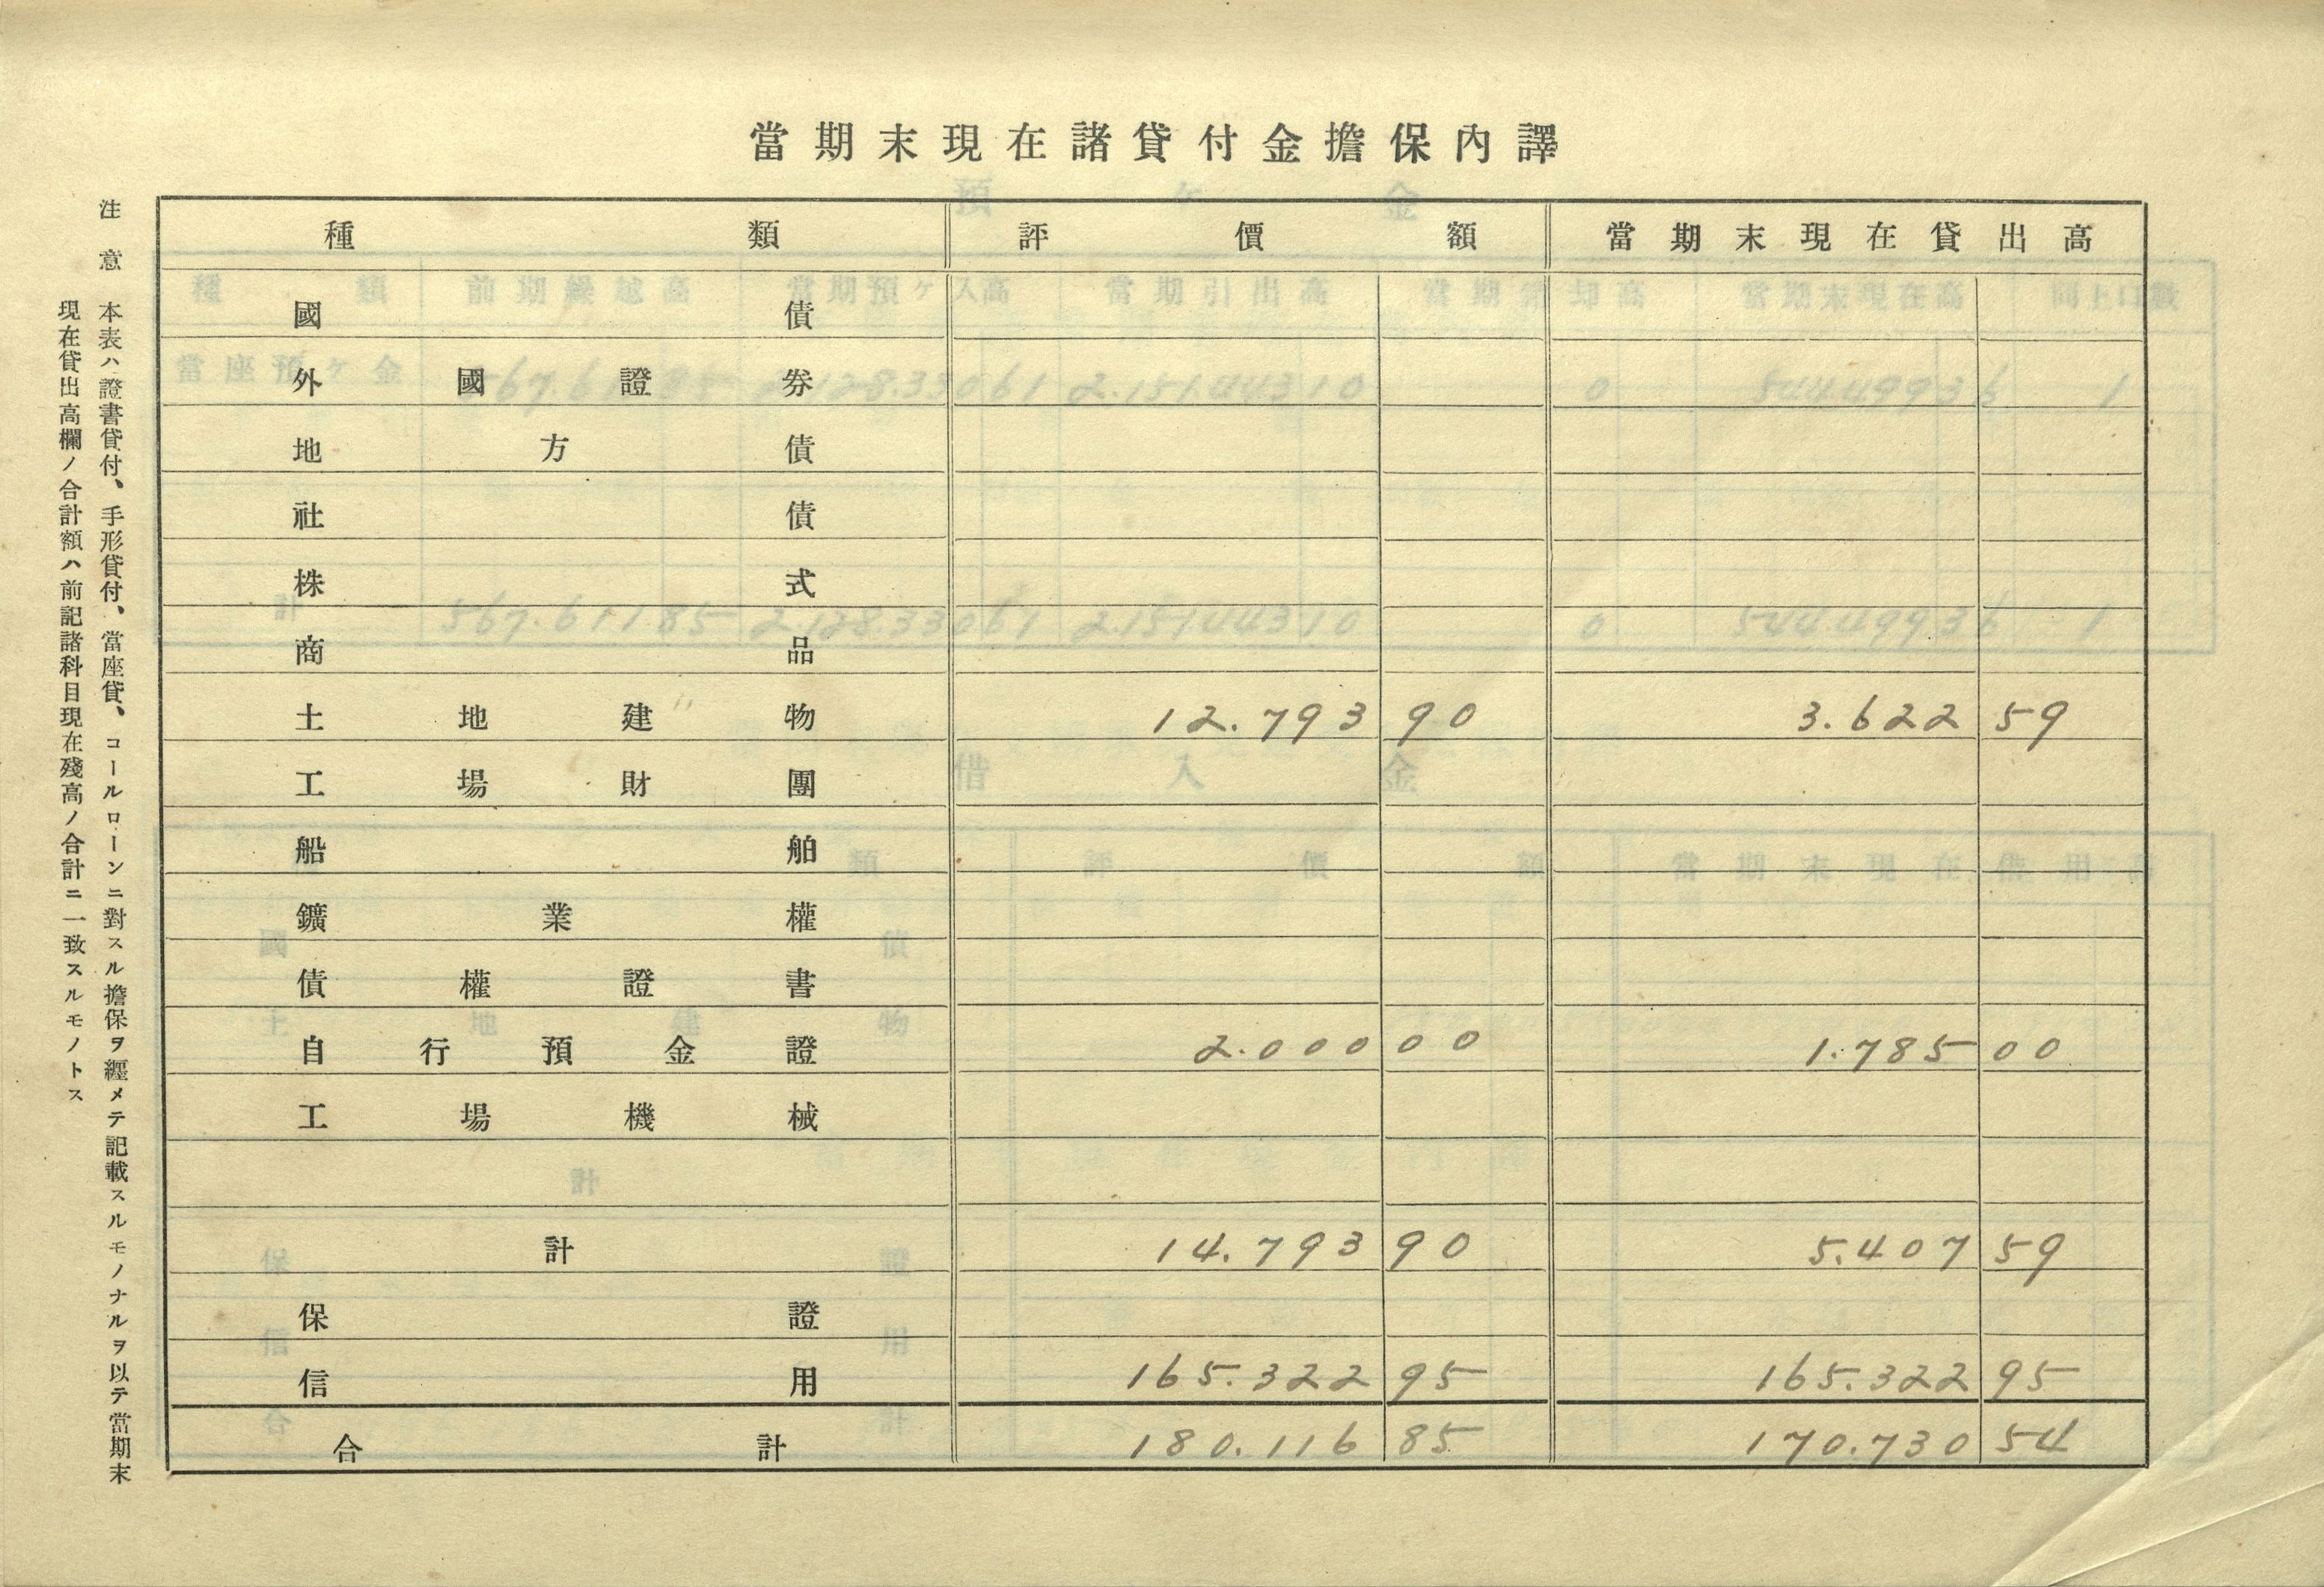 當期末現在諸貸付金擔保內譯
種類 評價額 當期末現在貸出高
國債
外國證券
地方債
社債
株式
商品
土地建物 12.793 90 3.622 59
工場財團
船舶
鑛業權
債權證書
自行預金證 2.000 00 1.785 00
工場機械
計 14.793 90 5.407 59
保證
信用 165.322 95 165.322 95
合計 180.116 85 170.730 54
注意 本表ハ證書貸付、手形貸付、當座貸、コールローンニ對スル擔保ヲ纒メテ記載スルモノナルヲ以テ當期末
現在貸出高欄ノ合計額ハ前記諸科目現在殘高ノ合計ニ一致スルモノトス